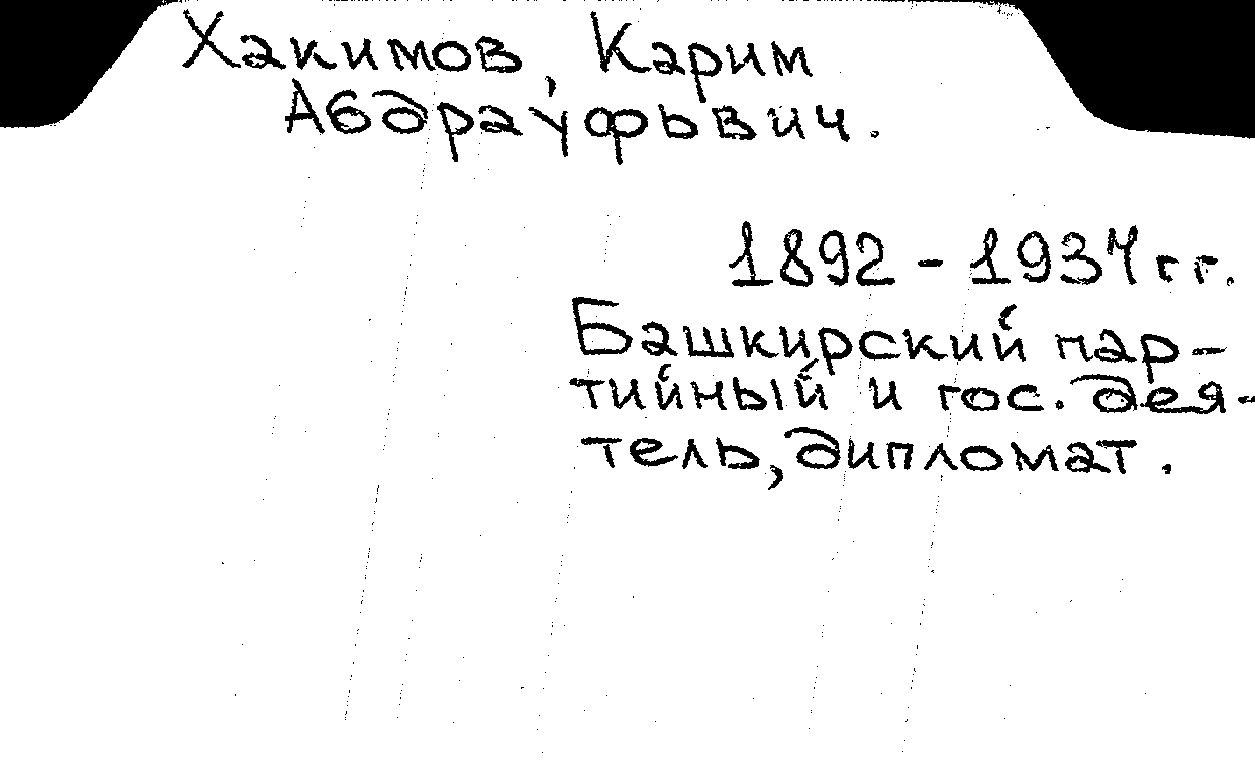 Хакимов, Карим
Абдрауфьвич.
1892 - 1937 гг.
Башкирский пар-
тийный и гос. дея-
тель, дипломат.